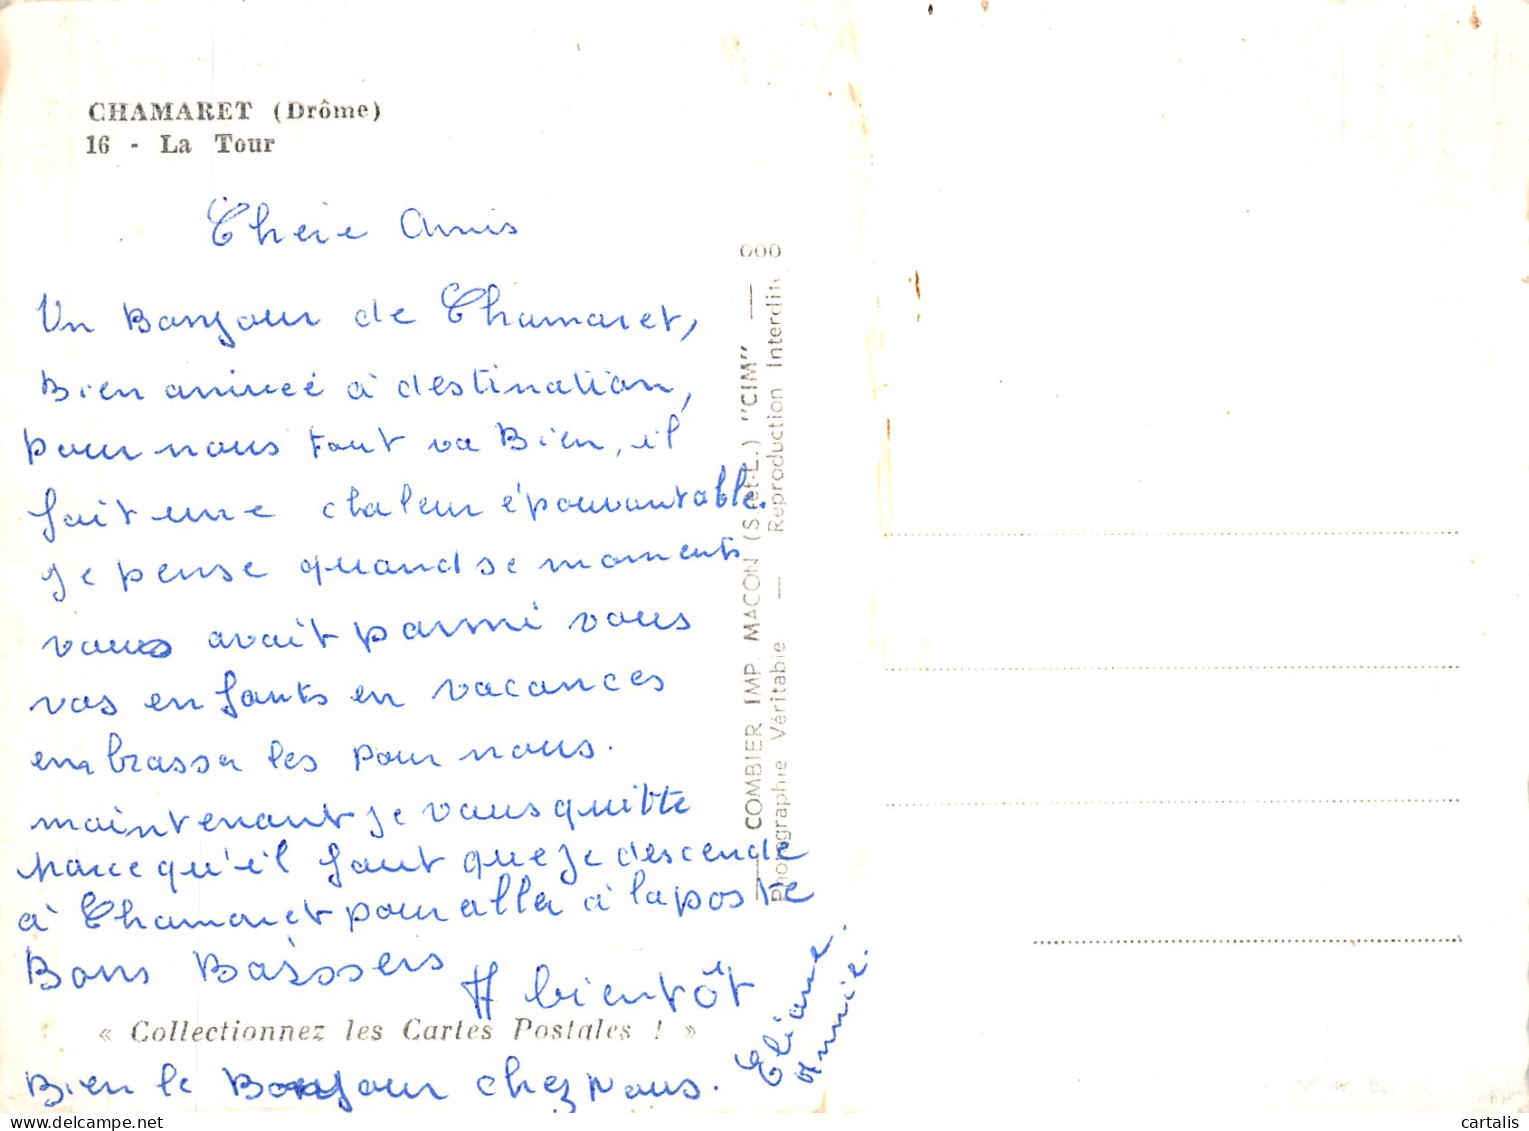 CHAMARET (Drôme)
16 - La Tour
Cheie Amis
Un Bonjour de Chamaret,
Bien arrivée à destination,
pour nous tout va Bien, il
fait une chaleur épouvantable.
Je pense quand se moments
vous avait parmi vous
vos enfants en vacances
embrasser les pour nous.
maintenant je vous quitte
parce qu'il faut que je descende
à Chamaret pour aller à la poste
Bons Baissers
A bientôt
Eliane.
Annie.
« Collectionnez les Cartes Postales ! »
Bien le Bonjour chez Nous.
COMBIER IMP. MACON (S.-et-L.) "CIM" —
Photographie Véritable — Reproduction Interdite
000
cartalis